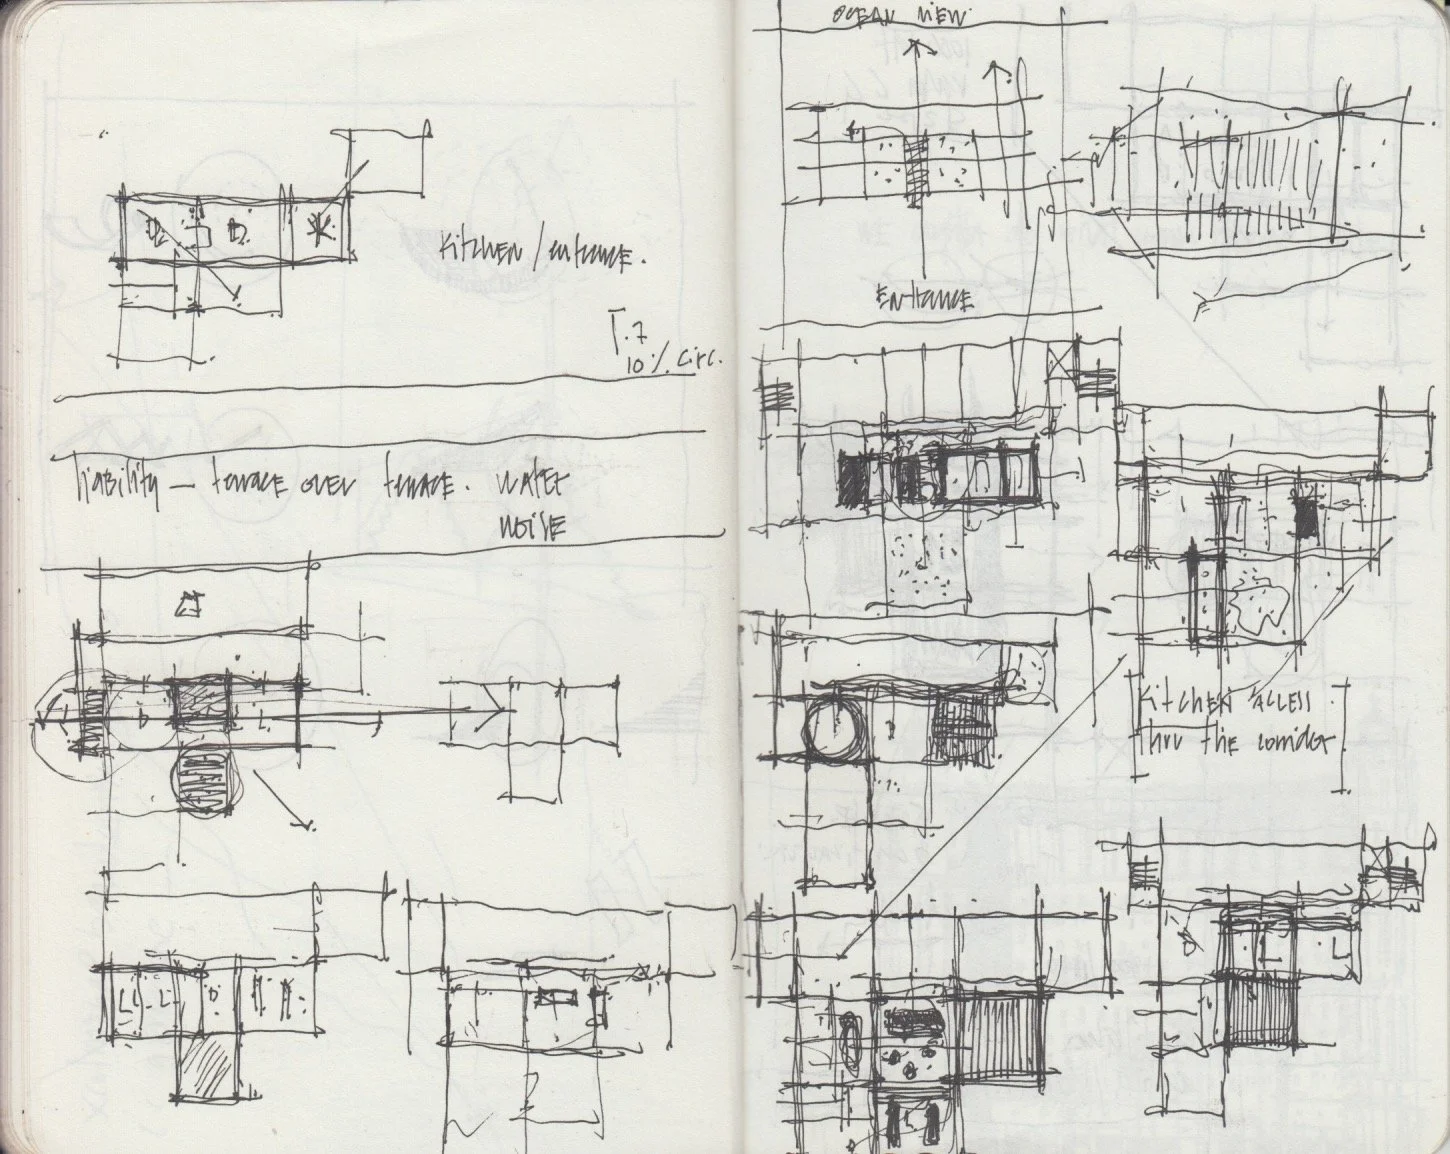 Kitchen / entrance.
10% circ.
liability — terrace over terrace. water
noise
OCEAN VIEW
Entrance
kitchen access
thru the corridor